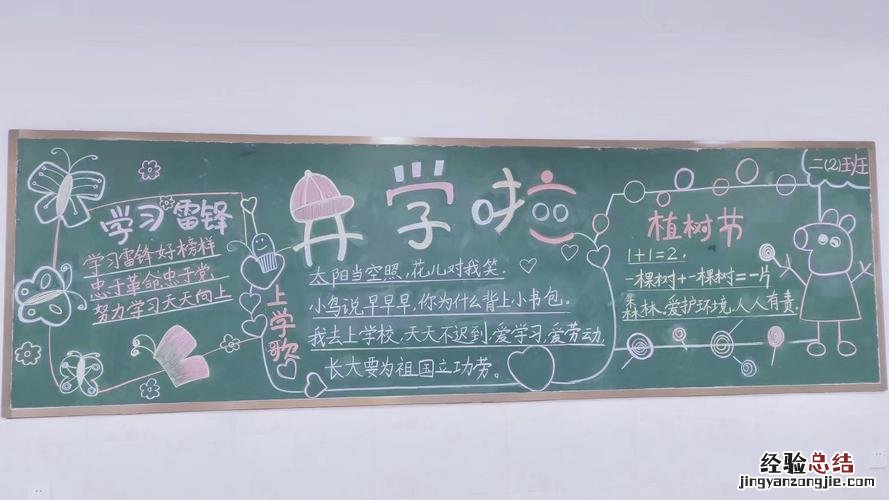 开学啦
二(2)班
学习雷锋
学习雷锋好榜样
忠于革命忠于党
努力学习天天向上
上学歌
太阳当空照,花儿对我笑.
小鸟说早早早,你为什么背上小书包。
我去上学校,天天不迟到,爱学习,爱劳动,
长大要为祖国立功劳。
植树节
1+1=2.
一棵树+一棵树=一片
森林,爱护环境,人人有责.
经验总结
jingyanzongjie.com